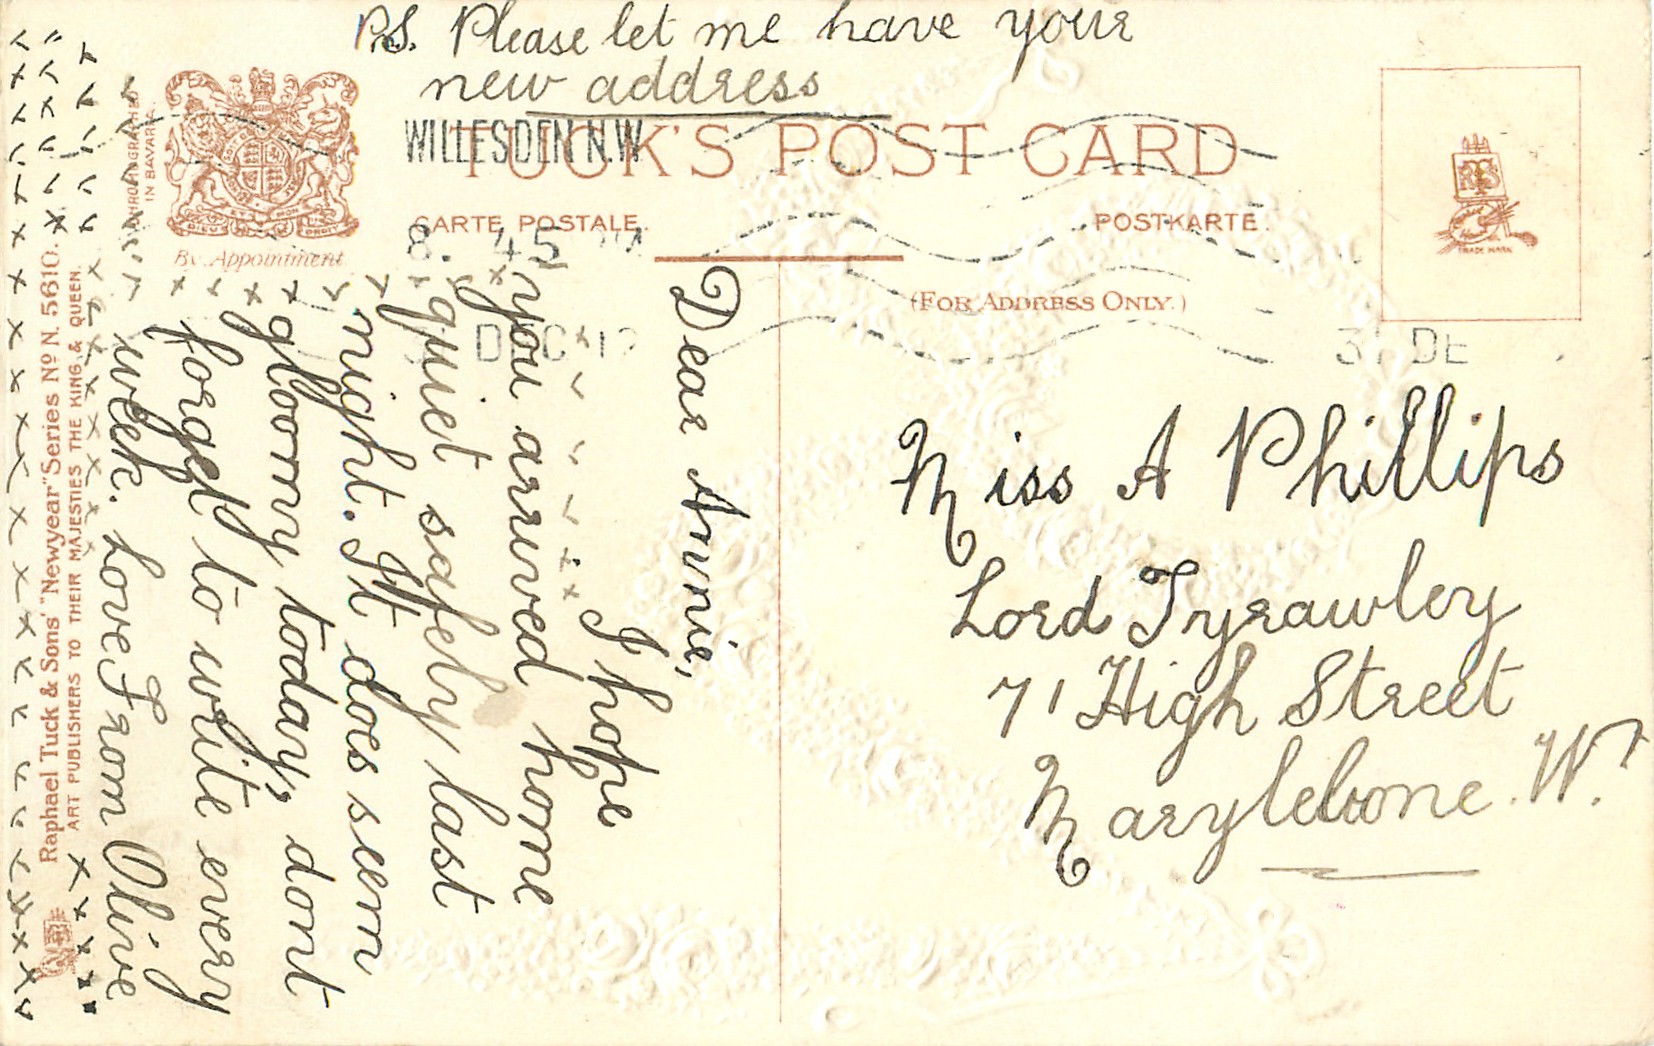 P.S. Please let me have your
new address
WILLESDEN N.W
8. 45
DEC 12
31 DE
TUCK'S POST CARD
CARTE POSTALE.
POSTKARTE.
(FOR ADDRESS ONLY.)
By Appointment
IN BAVARIA.
Raphael Tuck & Sons' "Newyear" Series No N. 5610.
ART PUBLISHERS TO THEIR MAJESTIES THE KING & QUEEN.
TRADE MARK
Dear Annie,
I hope
you arrived home
quiet safely last
night. It does seem
gloomy today, dont
forget to write every
week. Love From Olive
Miss A Phillips
Lord Tyrawley
71 High Street
Marylebone. W.